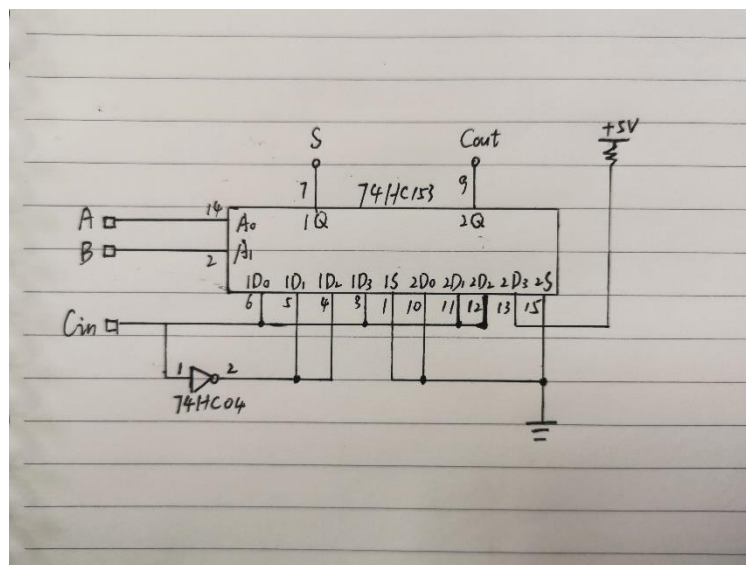 S Cout +5V
7 74HC153 9
A 14 A₀ 1Q 2Q
B 2 A₁
1D₀ 1D₁ 1D₂ 1D₃ 1S 2D₀ 2D₁ 2D₂ 2D₃ 2S
6 5 4 3 1 10 11 12 13 15
Cin
1 2
74HC04